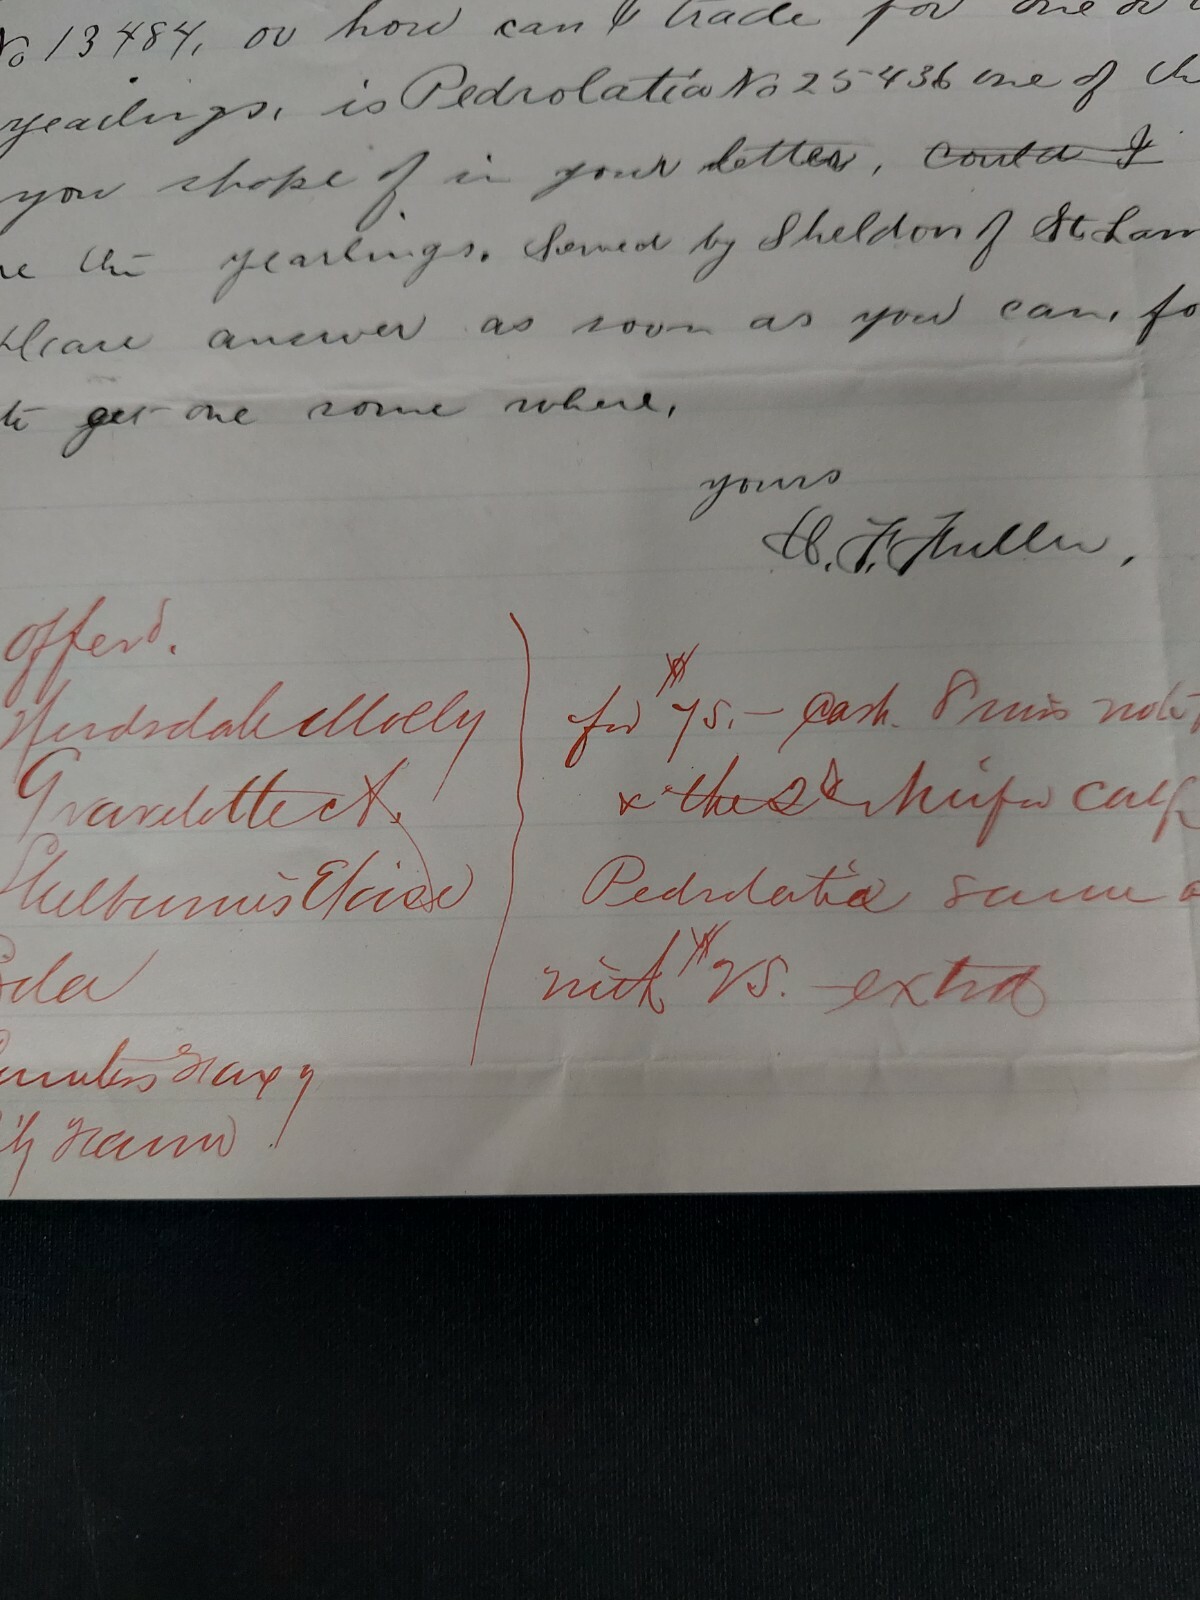 No 13484, or how can I trade for one or
yearlings, is Pedrolatia No 25436 one of the
you spoke of in your letter, could I
the yearlings. Served by Sheldon of St Lam
Please answer as soon as you can, fo
to get one some where,
yours
H. F. Fuller,
offerd.
Herdsdale Molly
Gravelotte A.
Shelburnes Eloise
for $75.- cash. 8 mos note,
& the 2d heifer calf
Pedrolatia same a
with $25.- extra
Farm